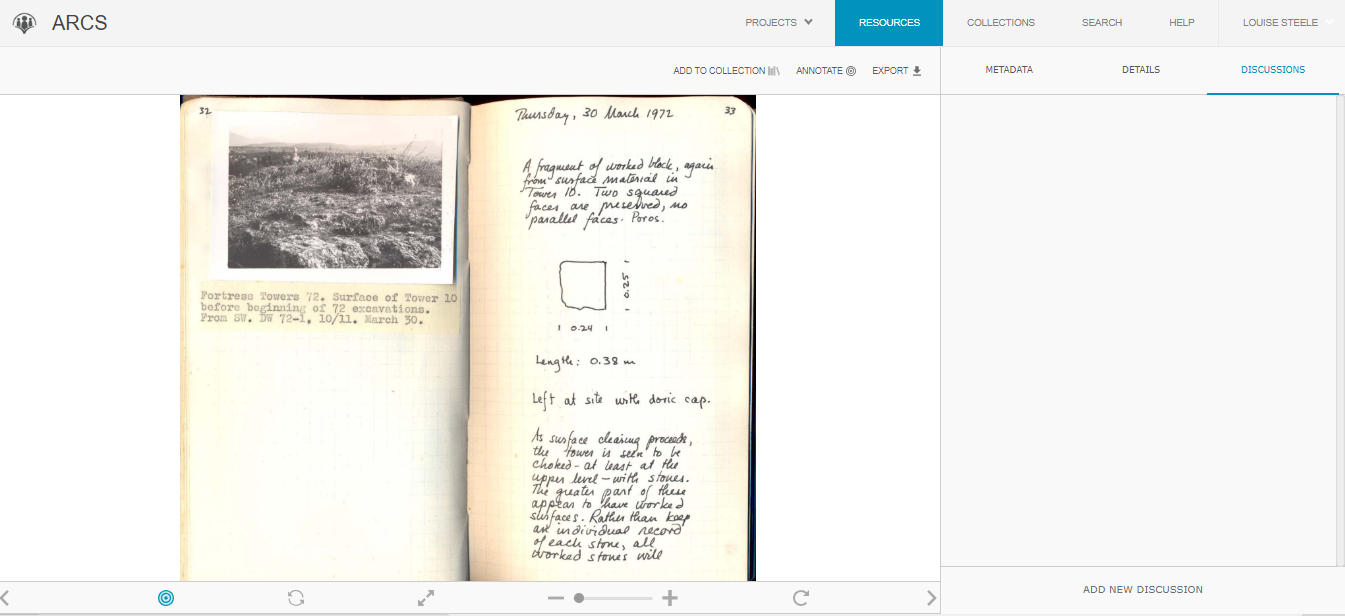 ARCS
PROJECTS
RESOURCES
COLLECTIONS
SEARCH
HELP
LOUISE STEELE
ADD TO COLLECTION
ANNOTATE
EXPORT
METADATA
DETAILS
DISCUSSIONS
32
Fortress Towers 72. Surface of Tower 10
before beginning of 72 excavations.
From SW. DW 72-1, 10/11. March 30.
Thursday, 30 March 1972
33
A fragment of worked block, again
from surface material in
Tower 10. Two squared
faces are preserved, no
parallel faces. Poros.
0.25
0.24
Length: 0.38 m
Left at site with doric cap.
As surface clearing proceeds,
the tower is seen to be
choked - at least at the
upper level - with stones.
The greater part of these
appear to have worked
surfaces. Rather than keep
an individual record
of each stone, all
worked stones will
ADD NEW DISCUSSION